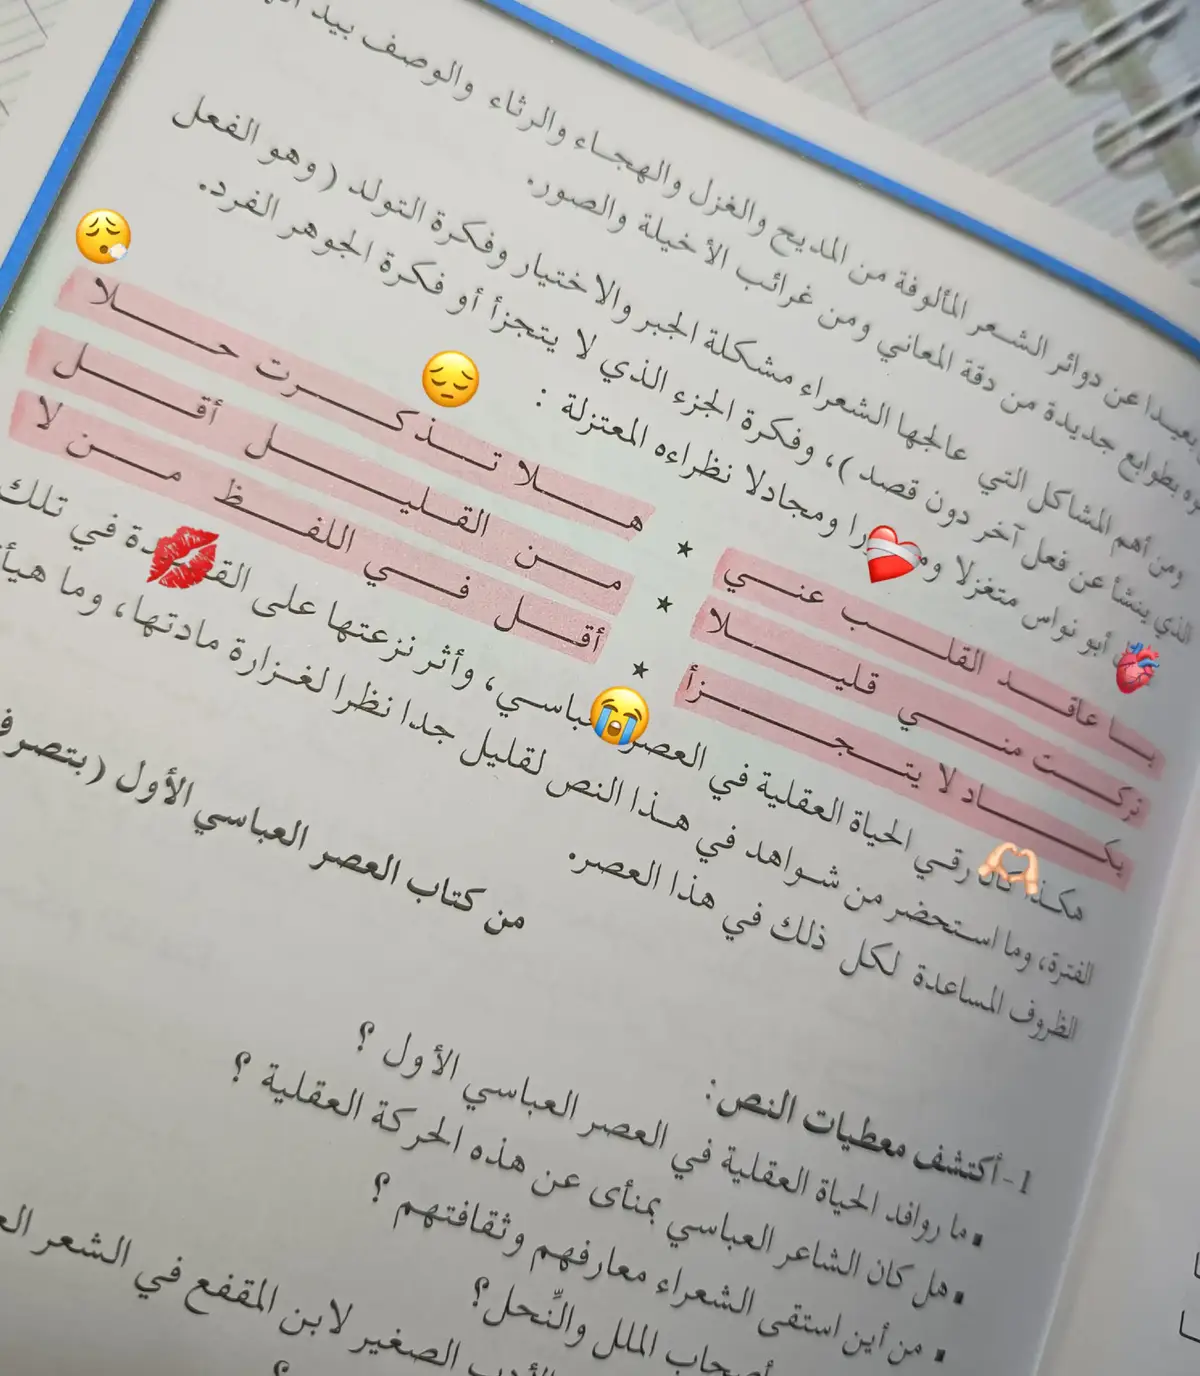 بعيدا عن دوائر الشعر المألوفة من المديح والغزل والهجاء والرثاء والوصف بيد
بطوابع جديدة من دقة المعاني ومن غرائب الأخيلة والصور.
ومن أهم المشاكل التي عالجها الشعراء مشكلة الجبر والاختيار وفكرة التولد ( وهو الفعل
الذي ينشأ عن فعل آخر دون قصد )، وفكرة الجزء الذي لا يتجزأ أو فكرة الجوهر الفرد.
أبو نواس متغزلا ومجادلا نظراءه المعتزلة :
يا عاقد القلب عني ★ هلا تذكرت حلا
تركت مني قليلا ★ من القليل أقل
يكاد لا يتجزأ ★ أقل في اللفظ من لا
هكذا كان رقي الحياة العقلية في العصر العباسي، وأثر نزعتها على القصيدة في تلك
الفترة، وما استحضر من شواهد في هذا النص لقليل جدا نظرا لغزارة مادتها، وما هيأ
الظروف المساعدة لكل ذلك في هذا العصر.
من كتاب العصر العباسي الأول (بتصرف
1-أكتشف معطيات النص:
▪ ما روافد الحياة العقلية في العصر العباسي الأول ؟
▪ هل كان الشاعر العباسي بمنأى عن هذه الحركة العقلية ؟
▪ من أين استقى الشعراء معارفهم وثقافتهم ؟
أصحاب الملل والنِّحل؟
الأدب الصغير لابن المقفع في الشعر
؟